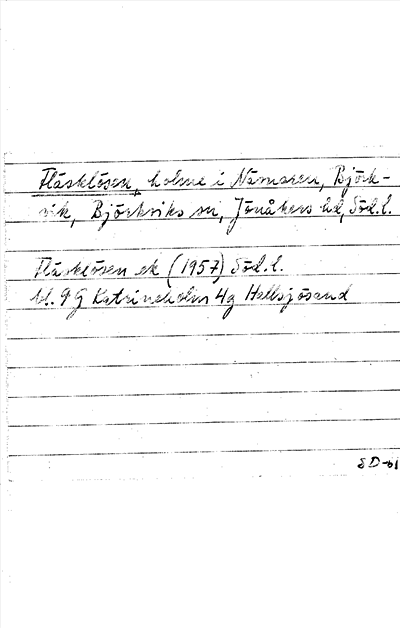 Fläsklösen, holme i Näsnaren, Björk-
vik, Björkviks sn, Jönåkers hd, Söd.l.
Fläsklösen ek (1957) Söd.l.
bl. 9G Katrineholm 4g Hallsjösand
SD-61